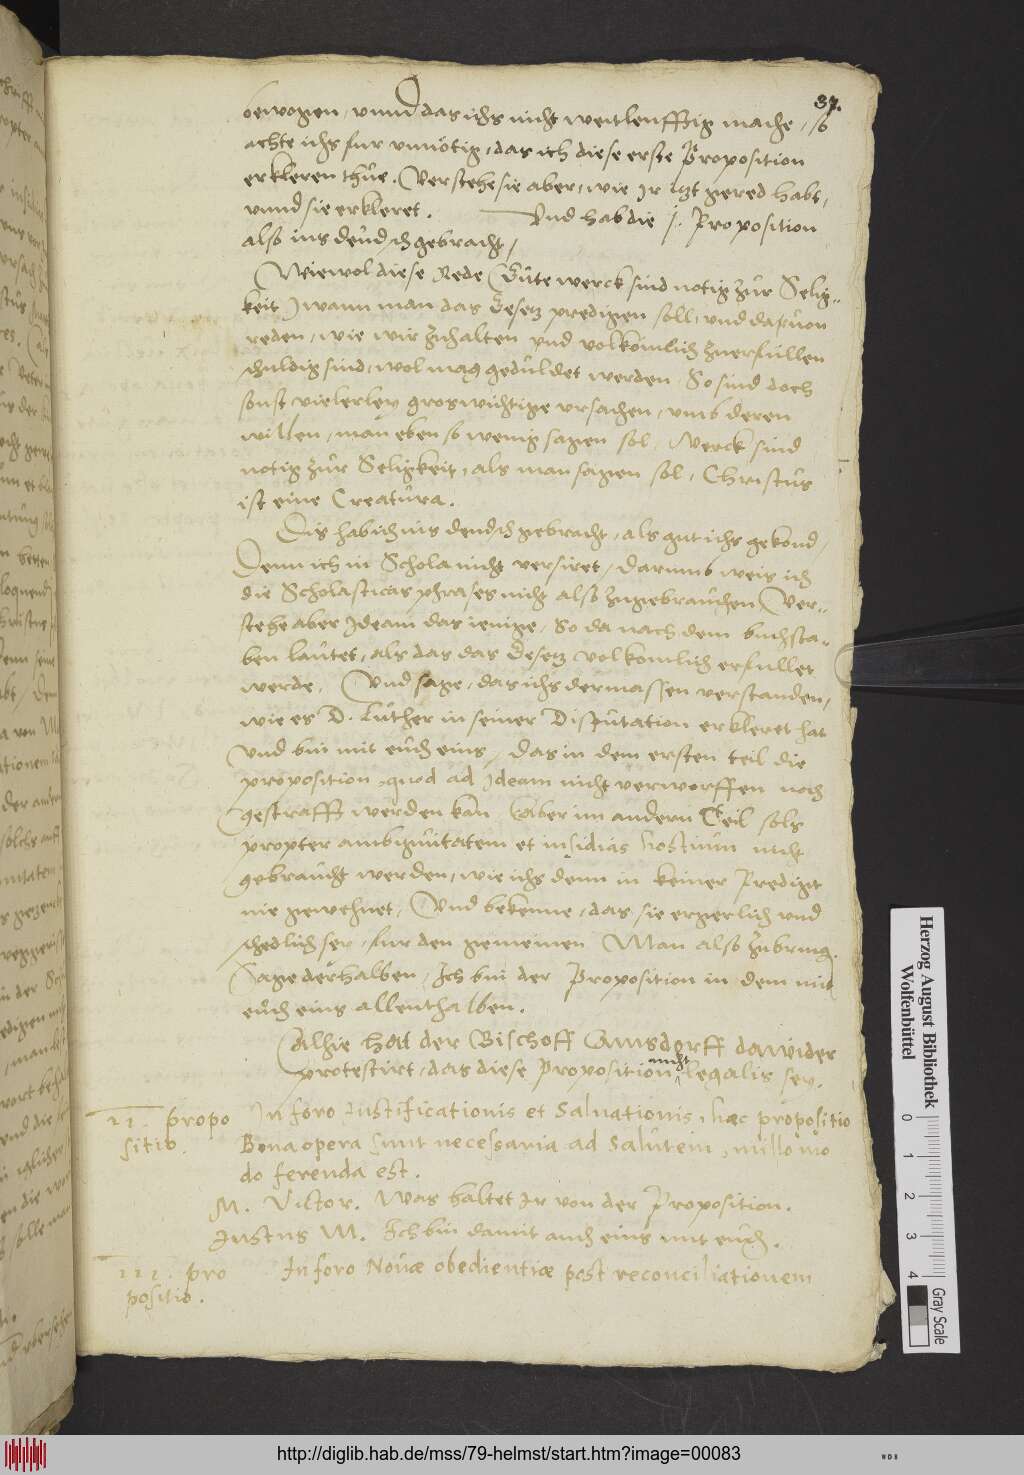 37.
bewogen, vnnd das ichs nicht weitleufftig mache, so
achte ichs fur vnnötig, das ich diese erste Proposition
erkleren thue. Verstehe sie aber, wie Ir itzt gered habt,
vnnd sie erkleret. Vnd hab die j. Proposition
also ins deudsch gebracht,
Wiewol diese Rede (Gute werck sind notig zur Selig-
keit) wann man das Gesetz predigen soll, vnd dauon
reden, wie wir zuhalten vnd volkömlich zuerfullen
schuldig sind, wol mag geduldet werden, So sind doch
sonst vielerley groswichtige vrsachen, vmb deren
willen, man eben so wenig sagen sol, Werck sind
notig zur Seligkeit, als man sagen sol, Christus
ist eine Creatura.
Dis hab ich ins deudsch gebracht, als gut ichs gekond,
Denn ich in Schola nicht versiret, darumb weis ich
die Scholasticas phrases nicht also zugebrauchen, Ver-
stehe aber Ideam das ienige, So da nach dem buchsta-
ben lautet, als das das Gesetz volkomlich erfullet
werde. Vnd sage, das ichs dermassen verstanden,
wie es D. Luther in seiner Disputation erkleret hat
Vnd bin mit euch eins, das in dem ersten teil die
proposition, quod ad Ideam nicht verworffen noch
gestrafft werden kan, Aber im andern Teil sols
propter ambiguitatem et insidias hostium nicht
gebraucht werden, wie ichs denn in keiner Predigt
nie gewehnet, Vnd bekenne, das sie ergerlich vnd
schedlich sey, fur den gemeinen Man also zubring.
Sage derhalben, Ich bin der Proposition in dem mit
euch eins allenthalben.
Alhie hat der Bischoff Amsdorff dawider
protestirt, das diese Proposition nicht legalis sey.
II. propo
sitio.
In foro Iustificationis et Saluationis, haec propositio
Bona opera sunt necessaria ad Salutem, nullo mo
do ferenda est.
M. Victor. Was haltet Ir von der Proposition.
Iustus M. Ich bin damit auch eins mit euch.
III. pro
positio.
In foro Nouae obedientiae post reconciliationem
Herzog August Bibliothek
Wolfenbüttel
0 1 2 3 4
Gray Scale
http://diglib.hab.de/mss/79-helmst/start.htm?image=00083